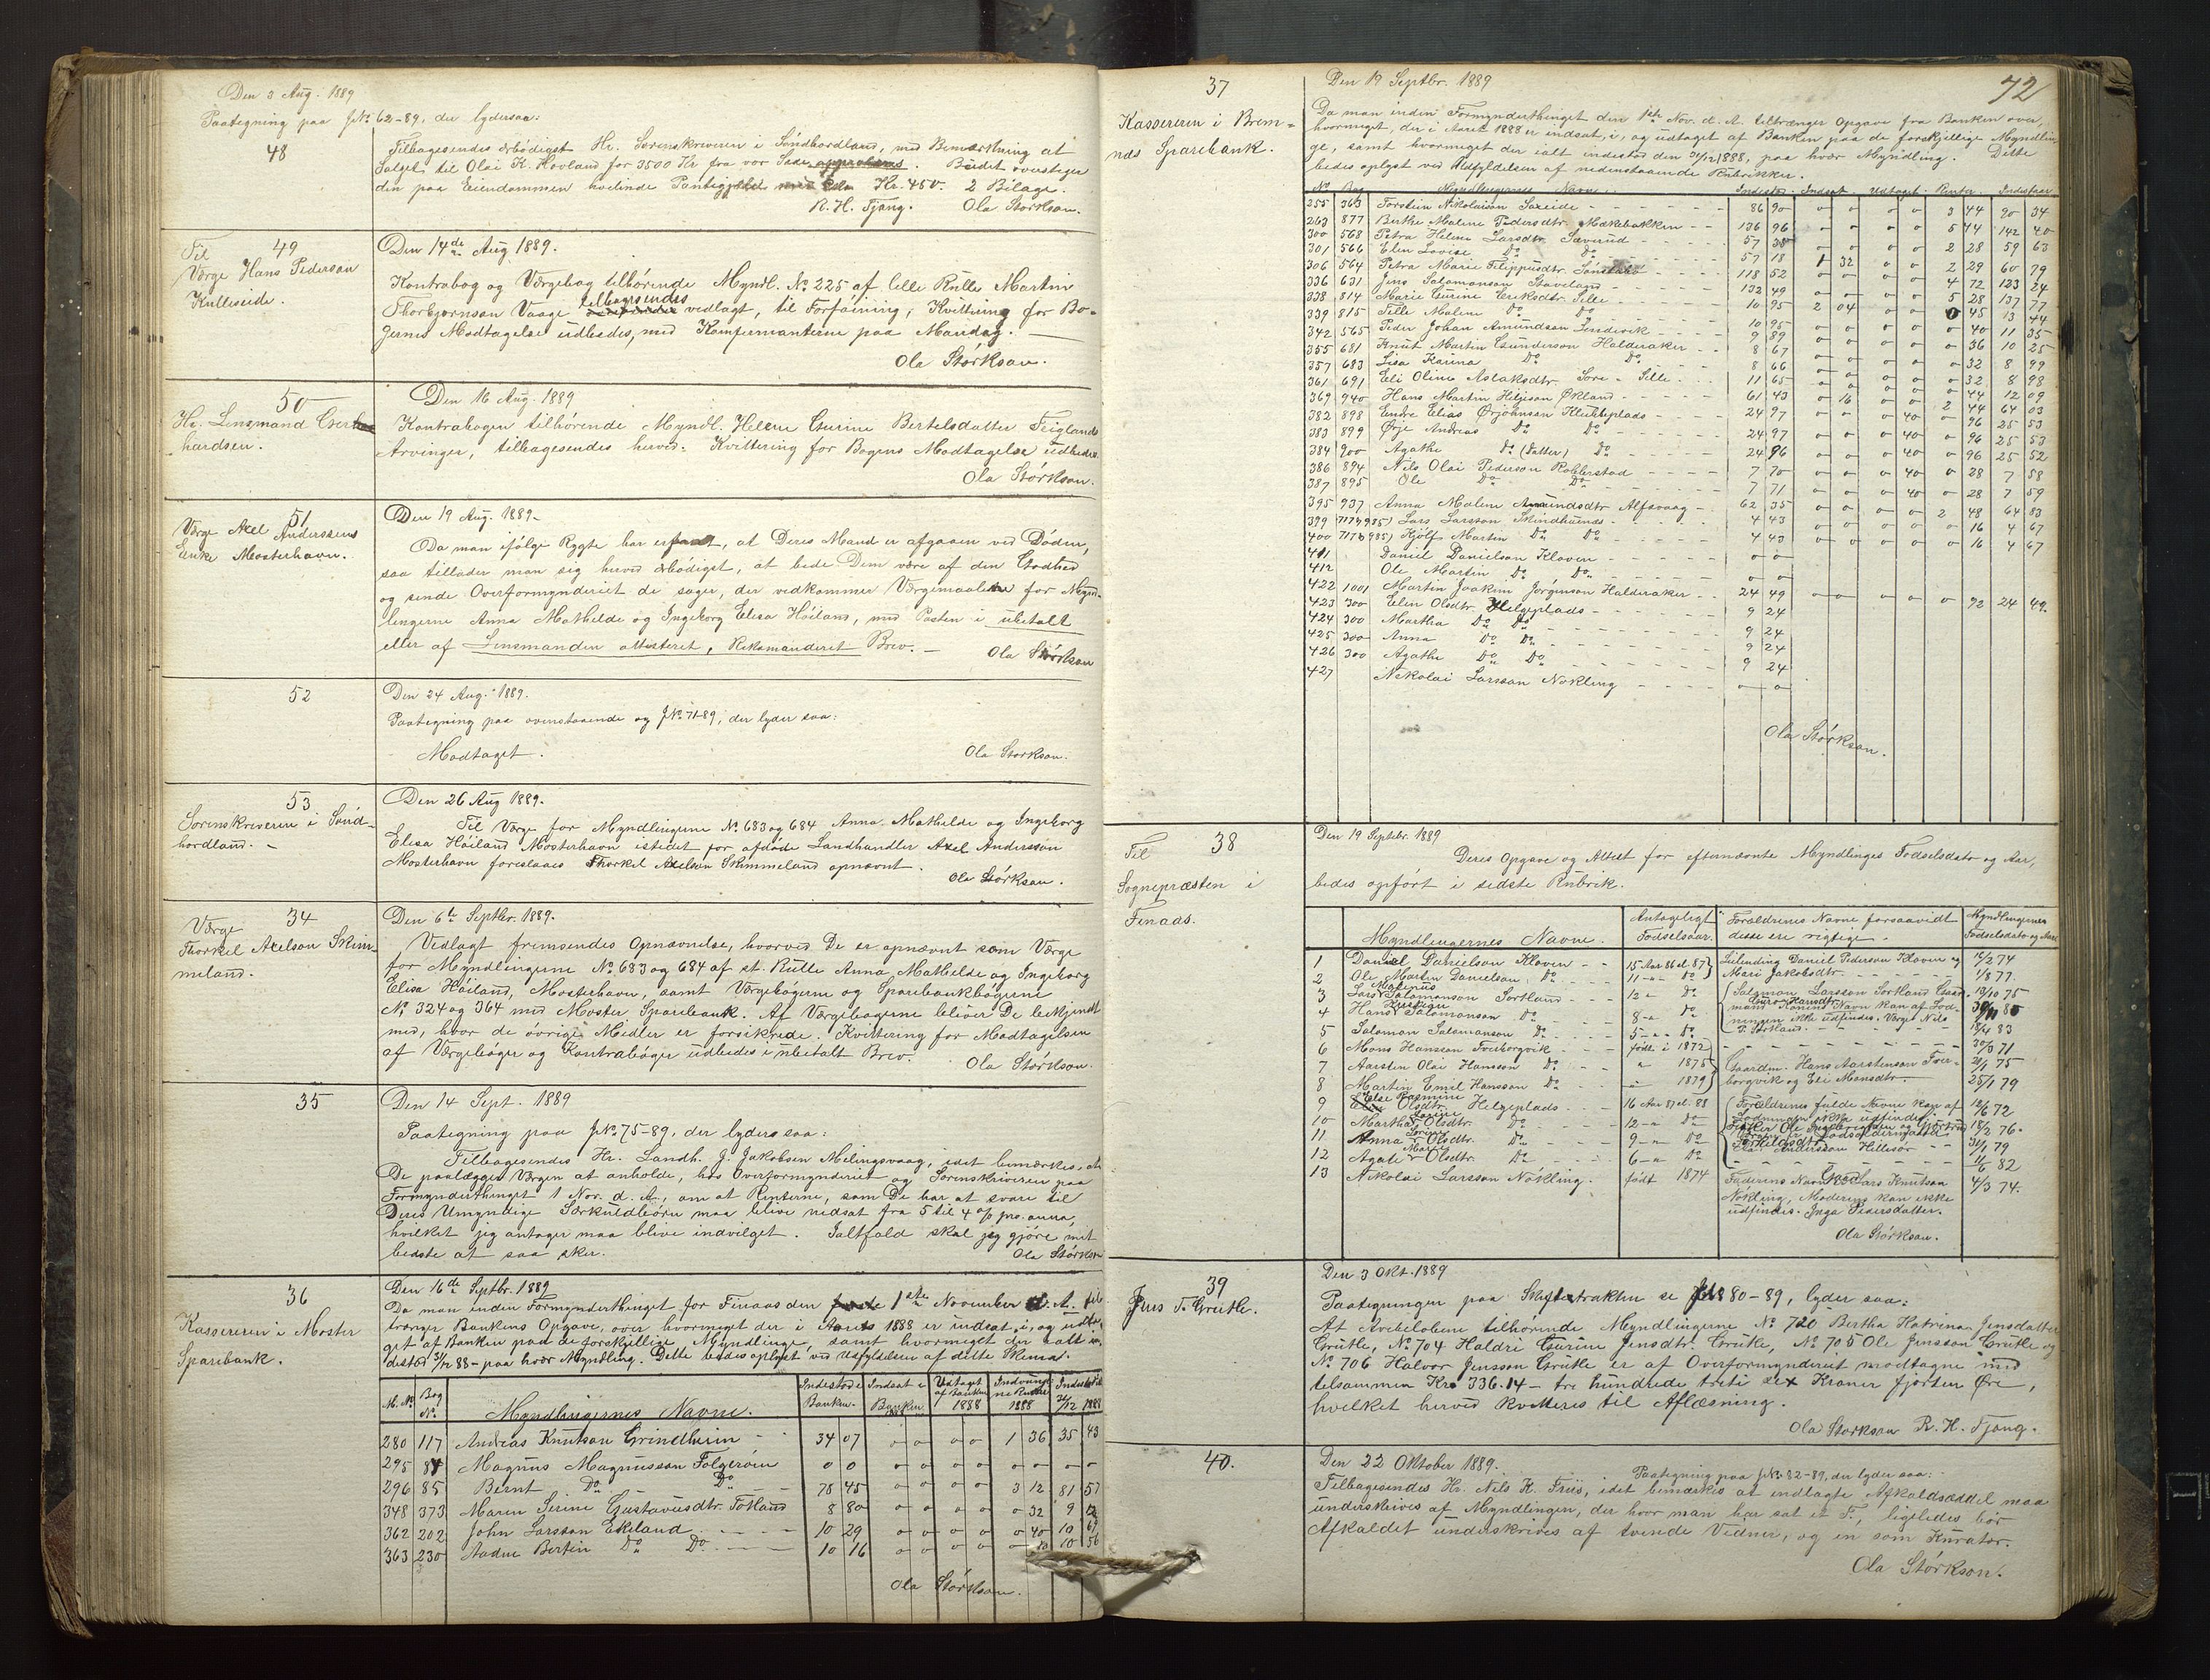 Den 3 Aug. 1889
Paategning paa J№ 62-89, der lydersaa:
48
Tilbagesendes ærbødigst Hr. Sorenskriveren i Söndhordland, med Bemærkning at
Salget til Olai K. Hovland for 3500 Kr fra vor Side approberes. Budet overstiger
den paa Eiendommen hvilende Pantegjæld med Kr. 450. 2 Bilage.
R. H. Tjong. Ola Störkson.
Til 49
Værge Hans Pederson
Kulleseide.
Den 14de Aug 1889.
Kontrabog og Værgebog tilhörende Myndl. № 225 af lille Rulle Martin
Thorbjornson Vaage tilbagesendes vedlagt, til Forföining; Kvittering for Bo-
gernes Modtagelse udbedes, med Konfermanterne paa Mandag.
Ola Störkson.
50
Hr. Lensmand Gser
hardsen.
Den 16 Aug. 1889
Kontrabogen tilhörende Myndl. Helene Gurine Bertelsdatter Teiglands
Arvinger, tilbagesendes herved. Kvittering for Bogens Modtagelse udbedes.
Ola Störkson.
51
Værge Axel Anderssens
Enke Mosterhavn.
Den 19 Aug. 1889.
Da man ifölge Rygte har erfaret, at Deres Mand er afgaaen ved Döden,
saa tillader man sig herved ærbödigst, at bede Dem være af den Godhed
og sende Overformynderiet de sager, der vedkommer Værgemaalene for Mynd-
lingerne Anna Mathilde og Ingeborg Elisa Höiland, med Posten i ubetalt
eller af Lensmanden attesteret, Rekomanderet Brev. - Ola Störkson
52
Den 24 Aug. 1889.
Paategning paa ovenstaaende og J№ 71-89, der lyder saa:
Modtaget. Ola Störkson.
53
Sorenskriveren i Sönd-
hordland. -
Den 26 Aug 1889.
Til Værge for Myndlingerne № 683 og 684 Anna Mathilde og Ingeborg
Elisa Höiland Mosterhavn istedet for afdöde Landhandler Axel Andersson
Mosterhavn foreslaaes Thorkel Axelson Skimmeland opnævnt.
Ola Störkson.
34
Værge
Thorkel Axelson Skim-
meland.
Den 6te Septbr. 1889.
Vedlagt fremsendes Opnævnelse, hvorved De er opnævnt som Værge
for Myndlingerne № 683 og 684 af st. Rulle Anna Mathilde og Ingeborg
Elisa Höiland, Mosterhavn, samt Værgebögerne og Sparebankbögerne
№ 324 og 364 med Moster Sparebank. Af Værgebogerne bliver De bekjendt
med, hvor de övrige Midler er forsikrede. Kvittering for Modtagelsen
af Værgeböger og Kontraböger udbedes i ubetalt Brev.
Ola Störkson.
35
Den 14 Sept. 1889
Paategning paa J№ 75-89, der lyders saa:
Tilbagesendes Hr. Landh. J. Jakobsen Melingsvaag, idet bemærkes, at
De paalægger Værgen at anholde, hos Overformynderiet og Sorenskriveren paa
Formynderthinget 1 Nov. d. A., om at Renterne, som De har at svare til
Deres Umyndige Særkuldbörn maa blive nedsat fra 5 til 4 o/o pro. anno,
hvilket jeg antager maa blive indvilget. Ialtfald skal jeg gjöre mit
bedste at saa sker. Ola Störkson
36
Kassereren i Moster
Sparebank.
Den 16de Septbr. 1889
Da man inden Formynderthinget for Finaas den 1ste November d. A. til-
trænger Bankens Opgave, over hvormeget der i Aaret 1888 er indsat, i, og udta-
get af Banken paa de forskjellige Myndlinge, samt hvormeget der ialt in-
destod 31/12 88 - paa hver Myndling. Dette bedes oplyst, ved Udfyldelsen af dette Skema.
M. № Bog № Myndlingernes Navne. Indestod i Banken. Indsat i Banken 1888 Udtaget af Banken 1888 Indvunne Renter 1888 Indestod 31/12 1888
280 117 Andreas Knutson Grindheim 34 07 o o o o 1 36 35 43
295 84 Magnus Magnusson Folgeröen o o o o o o o o o o
296 85 Bernt Do Do 78 45 o o o o 3 12 81 57
348 373 Maren Serine Gustavusdtr. Totland 8 80 o o o o o 32 9 12
362 202 John Larsson Ekeland 10 29 o o o o o 40 10 69
363 230 Aadne Bertin Do Do 10 16 o o o o o 40 10 56
Ola Störkson.
72
37
Kassereren i Brem-
nes Sparebank.
Den 19 Septbr. 1889
Da man inden Formynderthinget den 1ste Nov. d. A. tiltrænger Opgave fra Banken over,
hvormeget, der i Aaret 1888 er indsat, i, og udtaget af Banken paa de forskjellige Myndlin-
ge, samt hvormeget der ialt indestod den 31/12 1888, paa hver Myndling. Dette
bedes oplyst ved Udfyldelsen af nedenstaaende Rubrikker.
№ Bog Myndlingernes Navne Indestod. Indsat. Udtaget. Renter. Indestaar
255 363 Torstein Nikolaison Sæeide 86 90 o o o o 3 44 90 34
263 877 Berthe Malene Pedersdtr. Mækebakken 136 96 o o o o 5 44 142 40
300 568 Petra Helene Larsdtr. Sæverud 57 35 o o o o 2 28 59 63
301 566 Elen Lovise Do Do 57 18 1 32 o o 2 29 60 79
306 564 Petra Marie Filippusdtr. 118 52 o o o o 4 72 123 24
336 631 Jens Salomonson Staveland 132 49 o o o o 5 28 137 77
338 814 Marie Gurine Eriksdtr. Sille 10 95 2 04 o o o 45 13 44
339 815 Tille Malene Do Do 10 95 o o o o o 40 11 35
342 565 Peder Johan Amundson Indrevik 9 89 o o o o o 36 10 25
355 681 Knut Martin Gunderson Halderaker 8 67 o o o o o 32 8 99
357 683 Lisa Karina Do Do 8 66 o o o o o 32 8 98
361 691 Eli Oline Aslaksdtr. Sore-Sille 11 65 o o o o o 44 12 09
369 940 Hans Martin Helgeson Økland 61 43 o 16 o o 2 44 64 03
382 898 Endre Elias Ørjohnson Klubbeplads 24 97 o o o 40 o 96 25 53
383 899 Ørje Andreas Do Do 24 97 o o o 40 o 96 25 53
384 900 Agathe Do (Datter) Do 24 96 o o o 40 o 96 25 52
386 894 Nils Olai Pederson Robberstad 7 70 o o o 40 o 28 7 58
387 895 Ole Do Do 7 71 o o o 40 o 28 7 59
395 937 Anna Malene Amundsdtr Alfsvaag 62 35 o o o o 2 48 64 83
399 717 (985) Lars Larsson Skindhuends 4 43 o o o o o 16 4 67
400 717 (985) Hjölf Martin Do Do 4 43 o o o o o 16 4 67
411 Daniel Danielson Kloven o o
412 Ole Martin Do Do o o
422 1001 Martin Joakim Jörginson Halderaker 24 49 o o o o o 92 24 49.
423 300 Elen Olsdtr. Helgeplads 9 24
424 300 Martha Do Do 9 24
425 300 Anna Do Do 9 24
426 300 Agathe Do Do 9 24
427 Nikolai Larsson Nökling o o
Ola Störkson.
Til 38
Sognepræsten i
Finaas.
Den 19 Septbr. 1889
Deres Opgave og Attest for efternævnte Myndlinges Fodselsdato og Aar,
bedes opfört i sidste Rubrik.
Myndlingernes Navne. Antageligt Fodselsaar. Forældrenes Navne forsaavidt disse ere rigtige. Myndlingernes Fodselsdato og Aar
1 Daniel Danielson Kloven 15 Aar 86 el. 87 Leilending Daniel Pederson Kloven og 12/2 74
2 Ole Martin Danielson Do 11 - Do Mari Jakobsdtr. 1/8 77.
3 Lars Matenus Salomonson Sortland 12 Do Salomon Larsson Sortland Gaard- 13/10 75
4 Hans Salomonson Do 8 - Do mand Konens Navn kan af Sod- 80
5 Salomon Salomonson Do 5 - Do ningen ikke udfindes. Værge Nils 18/4 83
P. Sortland.
6 Mons Hansson Tverborgvik födt i 1872 30/3 71
7 Aarsten Olai Hansson Do 1875 Gaardm. Hans Aarstenson Tver- 21/1 75
8 Martin Emil Hansson Do 1879 borgvik og Eli Monsdtr. 25/1 79
9 Else Rasmine Olsdtr. Helgeplads 16 Aar 87 el. 88 Forældrenes fulde Navne kan af 12/6 72
10 Martha Olsdtr. Do 12 - Do Sodningen ikke udfindes. 18/2 76.
11 Anna Olsdtr. Do 9 - Do 31/1 79
12 Agate Olsdtr. Do 6 - Do 82
13 Nikolai Larsson Nökling. födt 1874 Faderens Navn Lars Knutson 4/3 74.
Nökling, Moderens kan ikke
udfindes. Inga Pedersdatter.
Ola Störkson.
39
Jens T. Grutle.
Den 3 Okt. 1889
Paategningen paa Skifteetrakten se J№ 80-89, lyder saa:
At Arvebelobene tilhörende Myndlingerne № 720 Bertha Katrina Jensdatter
Grutle, № 704 Haldri Gurine Jensdtr. Grutle, № 705 Ole Jensson Grutle og
№ 706 Halvor Jensson Grutle er af Overformynderiet modtagne med
tilsammen Kr. 336.14 - tre hundrede treti sex Kroner fjorten Øre,
hvilket herved kvitteres til Aflæsning.
Ola Störkson R. H. Tjong.
40.
Den 22 Oktober 1889.
Paategning paa J№ 82-89, der lyder saa:
Tilbagesendes Hr. Nils K. Friis, idet bemærkes at indlagte Afkaldsæddel maa
underskrives af Myndlingen, der hvor man har sat et F., ligeledes bör
Afkaldet underskrives af tvende Vidner, og en som Kurator.
Ola Störkson.